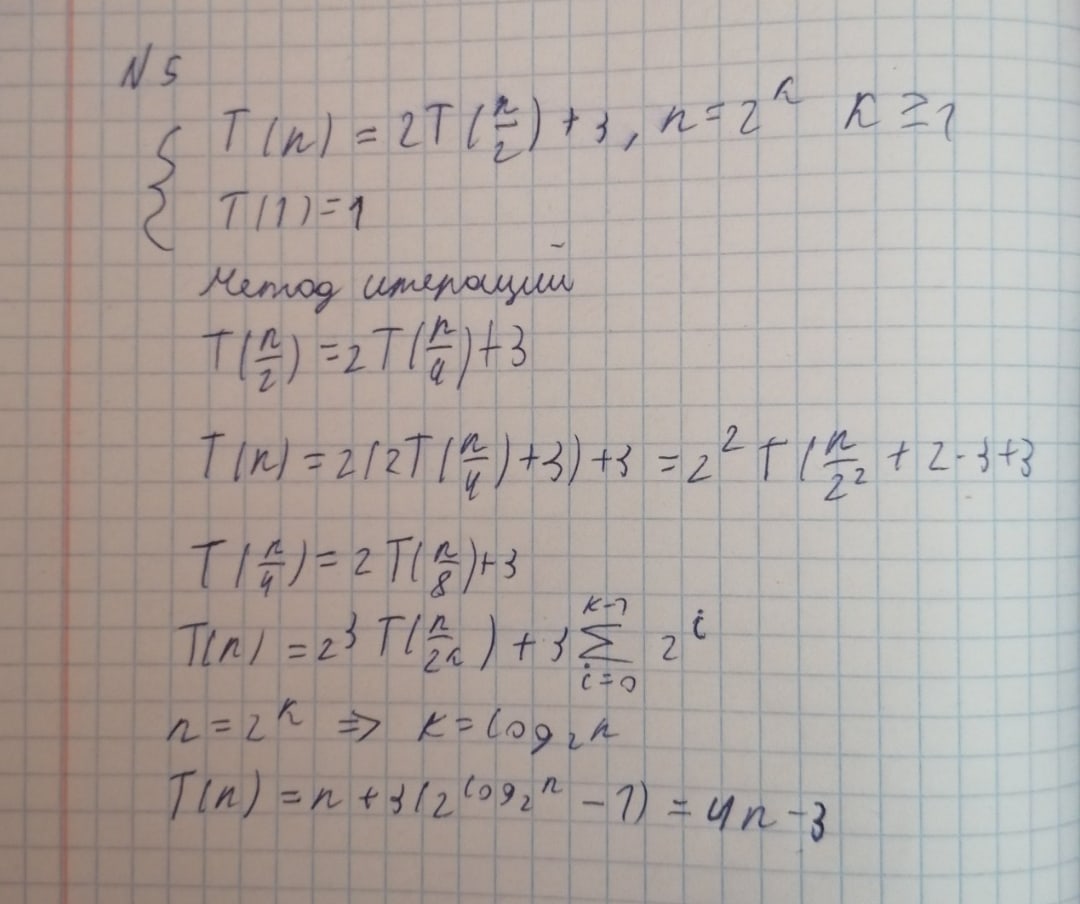 N 5
{ T(n) = 2T(n/2) + 3, n = 2^k k ≥ 1
T(1) = 1
Метод итераций
T(n/2) = 2T(n/4) + 3
T(n) = 2(2T(n/4) + 3) + 3 = 2^2 T(n/2^2 + 2·3+3
T(n/4) = 2T(n/8) + 3
T(n) = 2^3 T(n/2^k) + 3 ∑_{i=0}^{k-1} 2^i
n = 2^k ⇒ k = log_2 n
T(n) = n + 3(2^{log_2 n} - 1) = 4n - 3